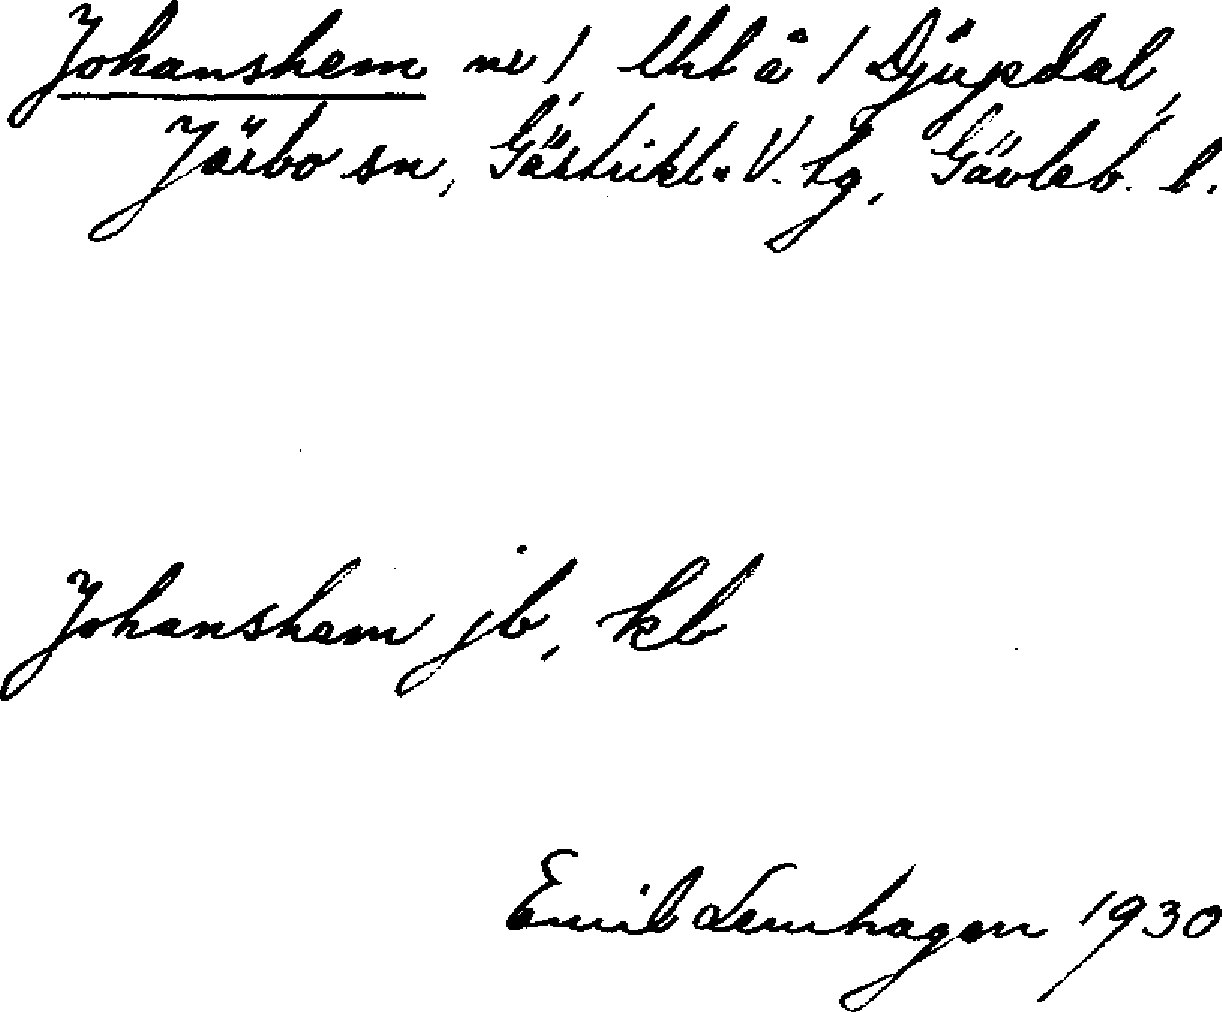 Johanshem nr 1, lht å 1 Djupdal,
Järbo sn, Gästrikl. V. tg, Gävleb. l.
Johanshem jb, kb
Emil Lemhagen 1930